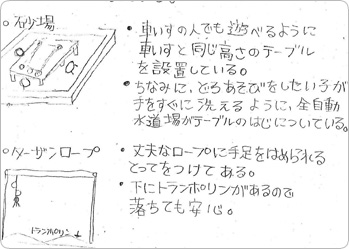 ○砂場
・車いすの人でも遊べるように
車いすと同じ高さのテーブル
を設置している。
・ちなみに、どろあそびをしたい子が
手をすぐに洗えるように、全自動
水道場がテーブルのはじについている。
○ターザンロープ
・丈夫なロープに手足をはめられる
とってをつけてある。
・下にトランポリンがあるので
落ちても安心。
トランポリン